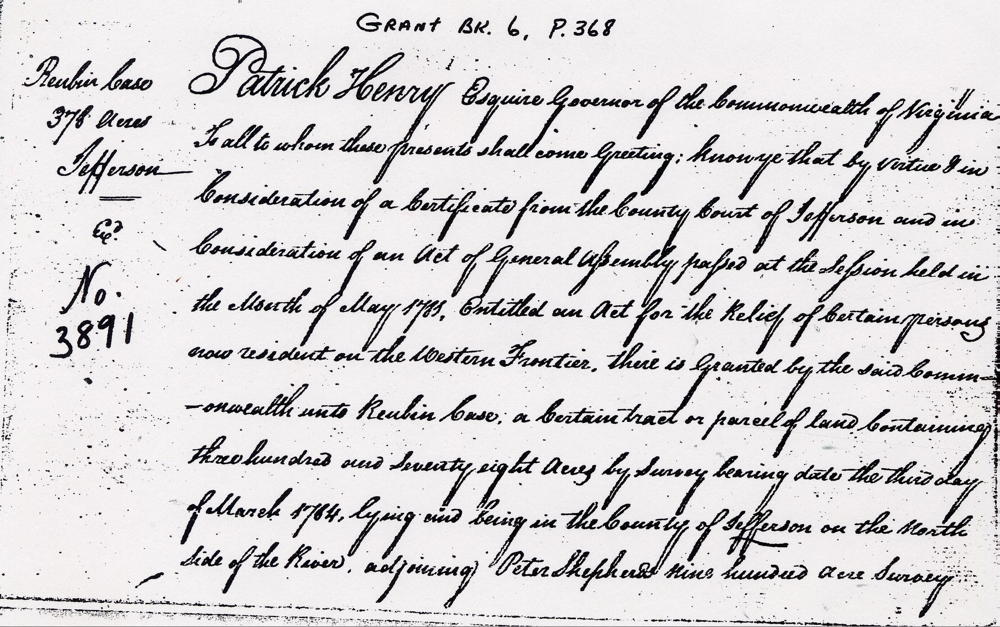 GRANT BK. 6, P. 368
Reubin Case
378 Acres
Jefferson
Exd.
No.
3891
Patrick Henry Esquire Governor of the Commonwealth of Virginia
To all to whom these presents shall come Greeting; know ye that by virtue & in
Consideration of a Certificate from the County Court of Jefferson and in
Consideration of an Act of General Assembly passed at the Session held in
the Month of May 1781, Entitled an Act for the Relief of Certain persons
now resident on the Western Frontier, there is Granted by the said Comm-
-onwealth unto Reubin Case, a Certain tract or parcel of land Containing
three hundred and Seventy eight Acres by Survey bearing date the third day
of March 1784, lying and being in the County of Jefferson on the North
Side of the River, adjoining Peter Shepherds nine hundred acre Survey